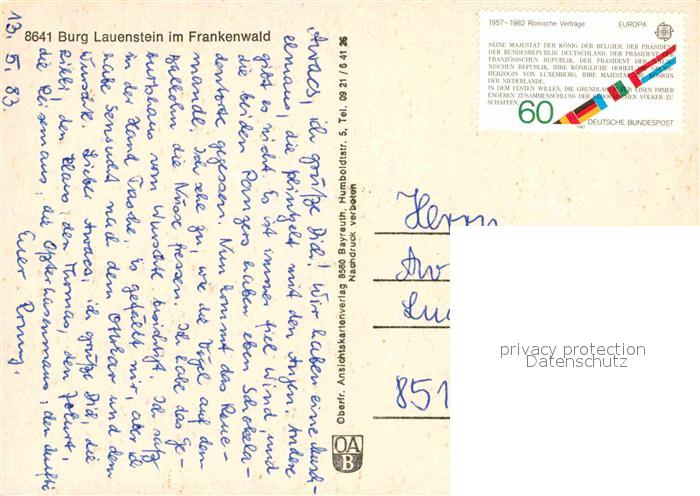 8641 Burg Lauenstein im Frankenwald
13. 5. 83.
ich grüße Dich! Wir haben eine
elmaus, die klingelt mit den Augen. Andere
gibt es nicht. Es ist immer viel Wind, und
die beiden Panzers haben eben Schokola-
dentorte gegessen. Nun kommt das Reue-
mandel. Ich sehe zu, wie die Vögel auf dem
die Nüsse fressen. Ich habe das Ge-
burtshaus vom Wunschte besichtigt. Ich saß
in der Hand Tasche. Es gefällt mir, aber ich
habe Sensucht nach dem Ottokar und dem
Wunschte. Liebe ich grüße Dich, die
Rikki, den Klaus, den Thomas, den
die Reisemaus, die Osterhasenmaus, den
Euer
Oberfr. Ansichtskartenverlag 8580 Bayreuth, Humboldtstr. 5, Tel. 09 21 / 6 41 26
Nachdruck verboten
OA
B
1957-1982 Römische Verträge EUROPA
SEINE MAJESTÄT DER KÖNIG DER BELGIER, DER PRÄSIDENT
DER BUNDESREPUBLIK DEUTSCHLAND, DER PRÄSIDENT DER
FRANZÖSISCHEN REPUBLIK, DER PRÄSIDENT DER ITALIE-
NISCHEN REPUBLIK, IHRE KÖNIGLICHE HOHEIT DIE GROSS-
HERZOGIN VON LUXEMBURG, IHRE MAJESTÄT DIE KÖNIGIN
DER NIEDERLANDE,
IN DEM FESTEN WILLEN, DIE GRUNDLAGEN FÜR EINEN IMMER
ENGEREN ZUSAMMENSCHLUSS DER EUROPÄISCHEN VÖLKER ZU
SCHAFFEN
60
DEUTSCHE BUNDESPOST
1982
Herrn
851
privacy protection
Datenschutz